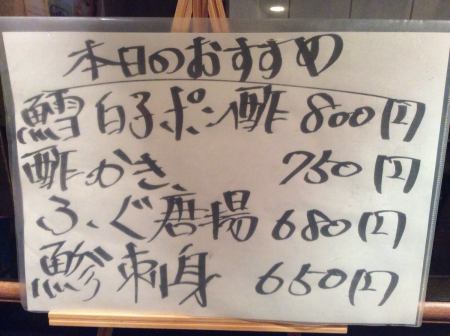 本日のおすすめ
鱈白子ポン酢 800円
酢かき 750円
ふぐ唐揚 680円
鯵刺身 650円